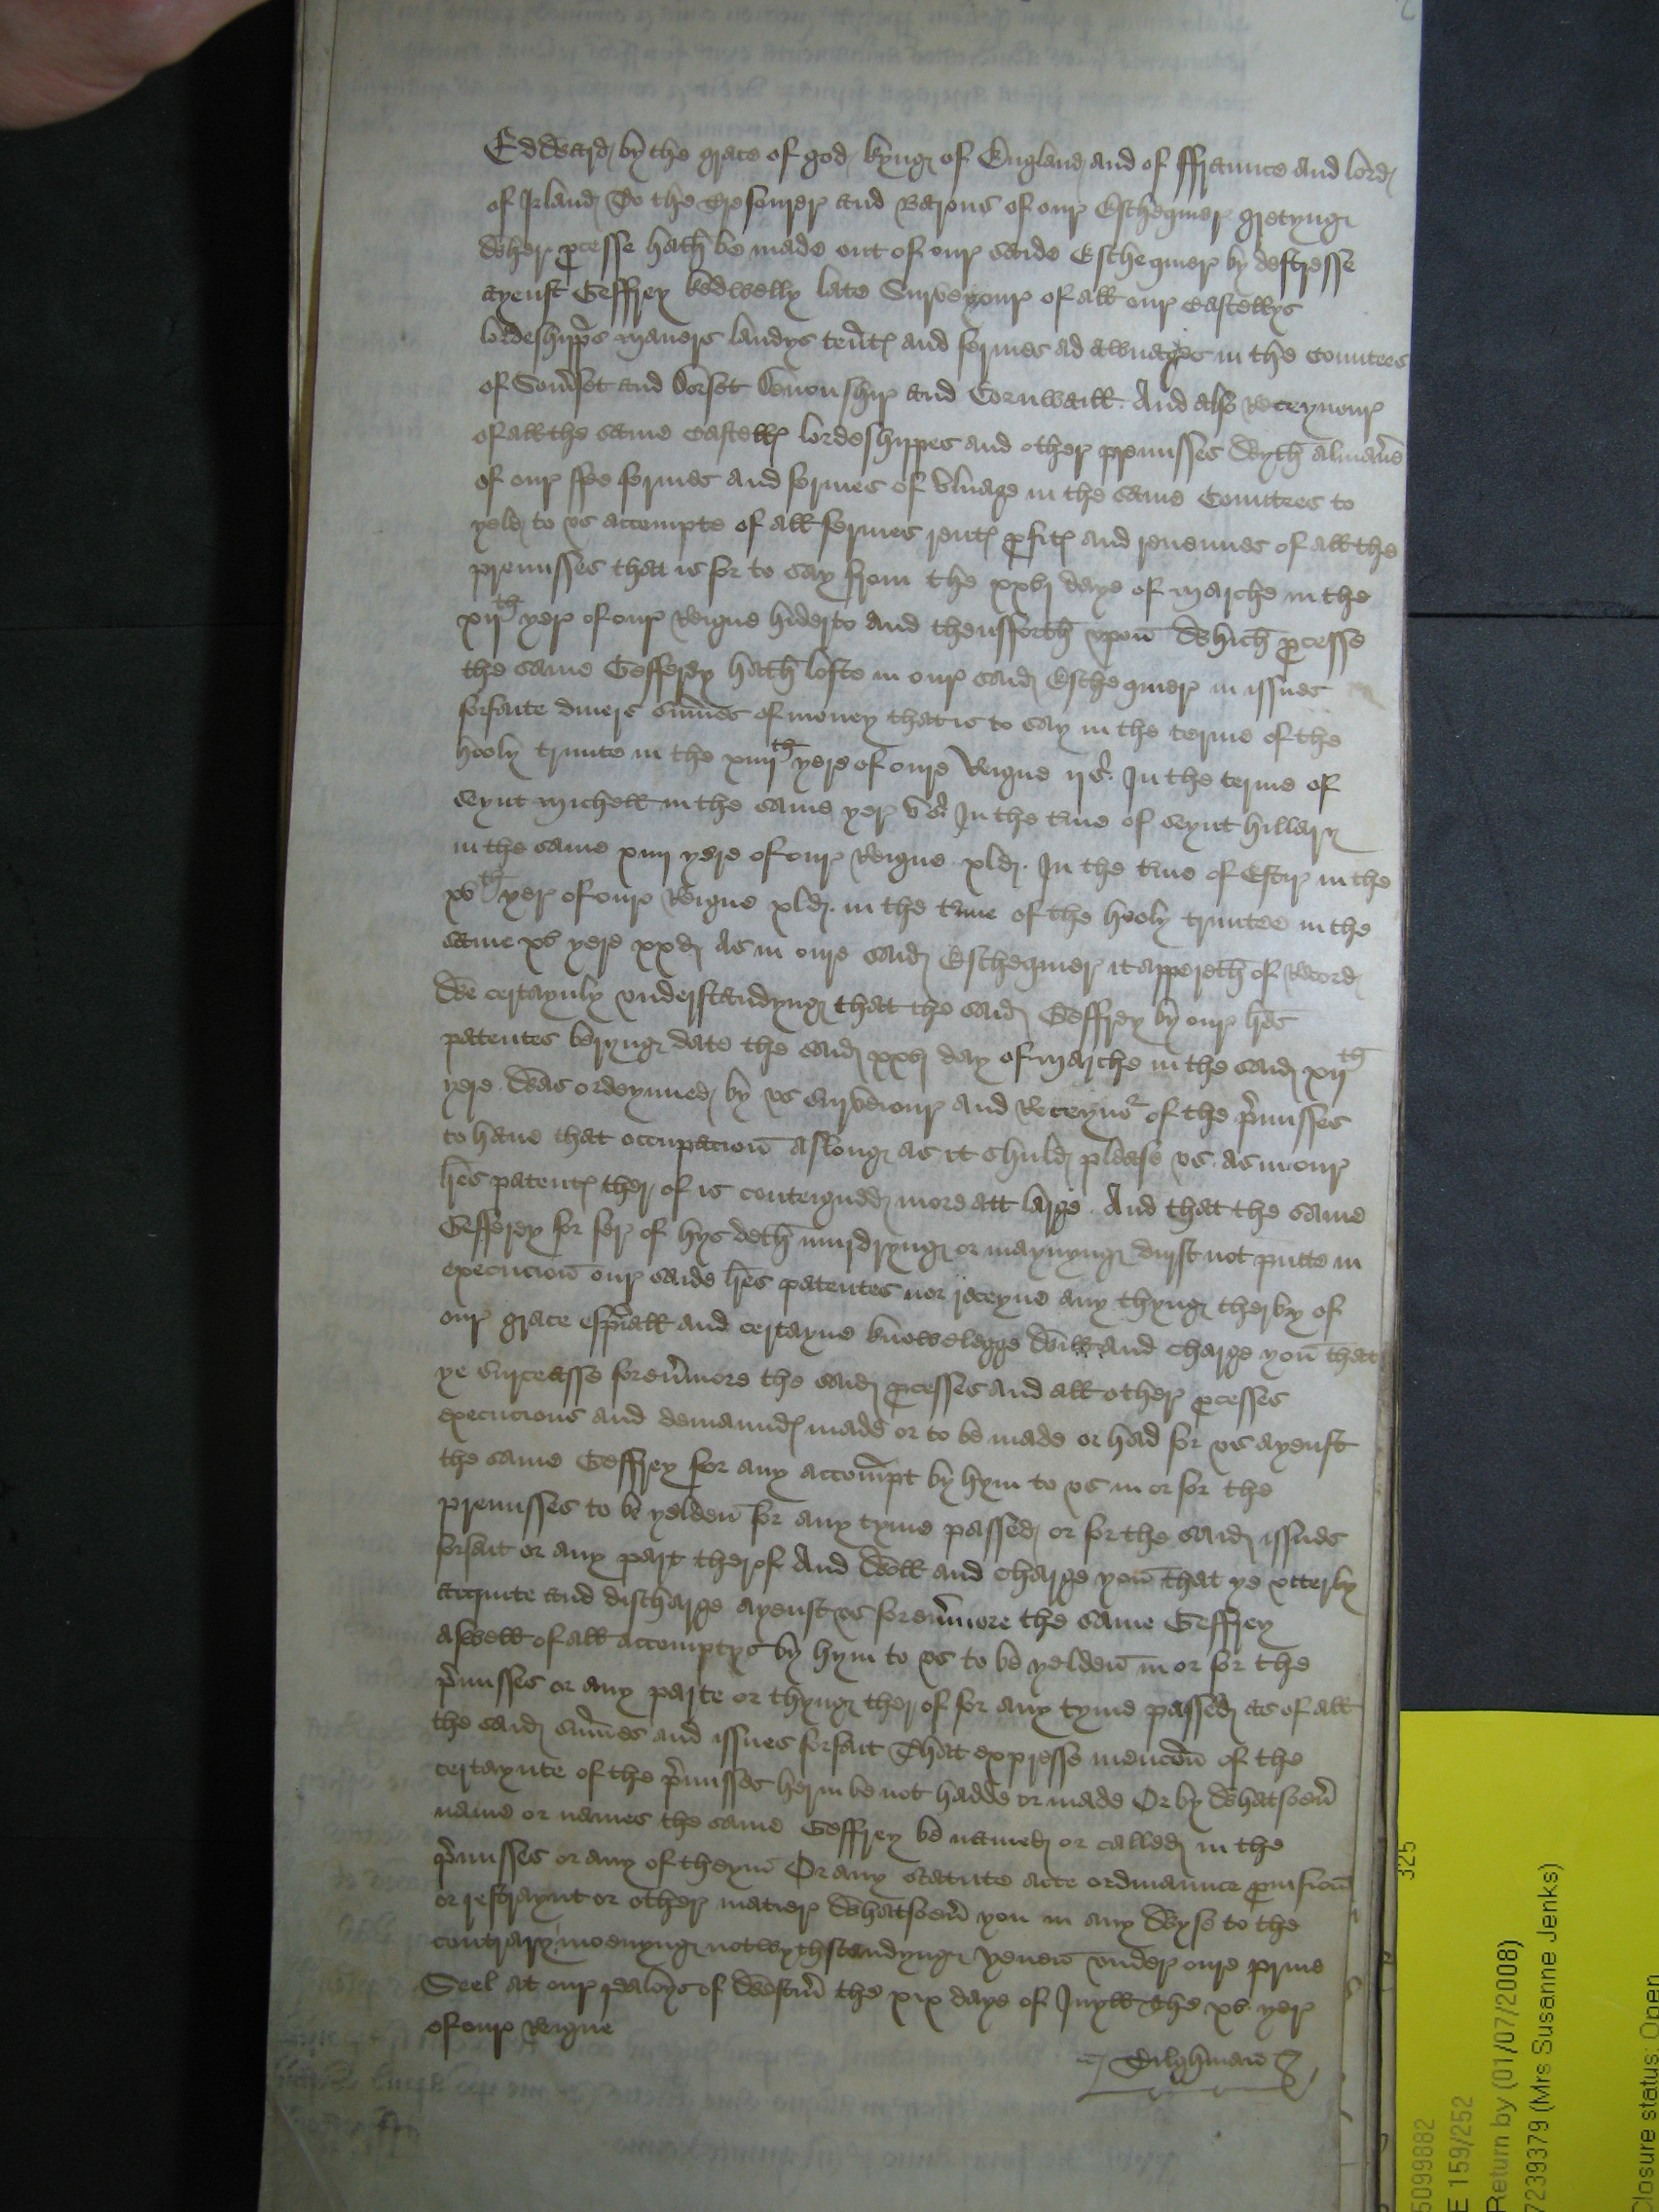 Edward by the grace of god kyng of England and of ffraunce and lord
of Irland To the Tresourer and Barons of our Eschequier gretyng
Wher processe hath be made out of our saide Eschequier by destresse
ayenst Geffrey kedwelly late Surveyour of all our Castellys
lordeshypps maners landys tentes and fermes ad awnages in the Countees
of Somerset and Dorset Devonshir and Cornwaill. And also Receyvour
of all the same Castelles lordeshippes and other premisses Wyth
of our ffee fermes and fermes of Vlnage in the same Countees to
yeld to vs accompte of all fermes rentes profites and revenues of all the
premisses that is for to say from the xxvj daye of marche in the
xijth yer of our Reigne hiderto and thensforth vpon Which processe
the same Gefferey hath loste in our said Eschequier in issues
forfaite divers summes of money that is to say in the terme of the
hooly trinite in the xiiijth yere of oure Reigne ij s. In the terme of
seynt michell in the same yer v s. In the time of seynt hillary
in the same xiiij yere of our Reigne xl d. In the time of Estir in the
xvth yer of oure Reigne xl d. in the time of the hooly trinitee in the
same xv yere xx d As in oure said Eschequier it apperith of Record
We certaynly vnderstandyng that the said Geffrey by our lres
patentes beryng date the said xxvj day of marche in the said xijth
yere. Was ordeynned by vs surveiour and Receyvor of the premisses
to have that occupacion aslong as it shuld please vs. as in our
lres patentes ther of is conteigned more att large. And that the same
Gefferey for fer of hys deth murdryng or maynyng durst not putte in
execucion our saide lres patentes nor receyve any thyng therby of
our grace especiall and certayne knowelegge Will and charge you that
ye surceasse forevermore the said processes and all other processes
execucions and demaundes made or to be made or had for vs ayenst
the same Geffrey for any accompt by hym to vs in or for the
premisses to be yelden for any tyme passed or for the said issues
forfait or any part therof And Woll and charge you that ye vtterly
acquite and discharge ayenst vs forevermore the same Geffrey
aswell of all accomptys by hym to vs to be yelden in or for the
premisses or any parte or thyng ther of for any tyme passed as of all
the said summes and issues forfait That expresse mencion of the
certaynte of the premisses herin be not hadde or made Or by Whatsoever
name or names the same Geffrey be named or called in the
premisses or any of theym Or any statute acte ordinaunce provision
or restraynt or other matier Whatsoever you in any Wyse to the
contrary moevyng notwythstandyng Yeven vnder oure prive
Seel at our paloys of Westm the xix daye of Juyll The xv. yer
of our Reigne
Tilghman
325
5099882
E 159/252
Return by (01/07/2008)
7239379 (Mrs Susanne Jenks)
Closure status: Open